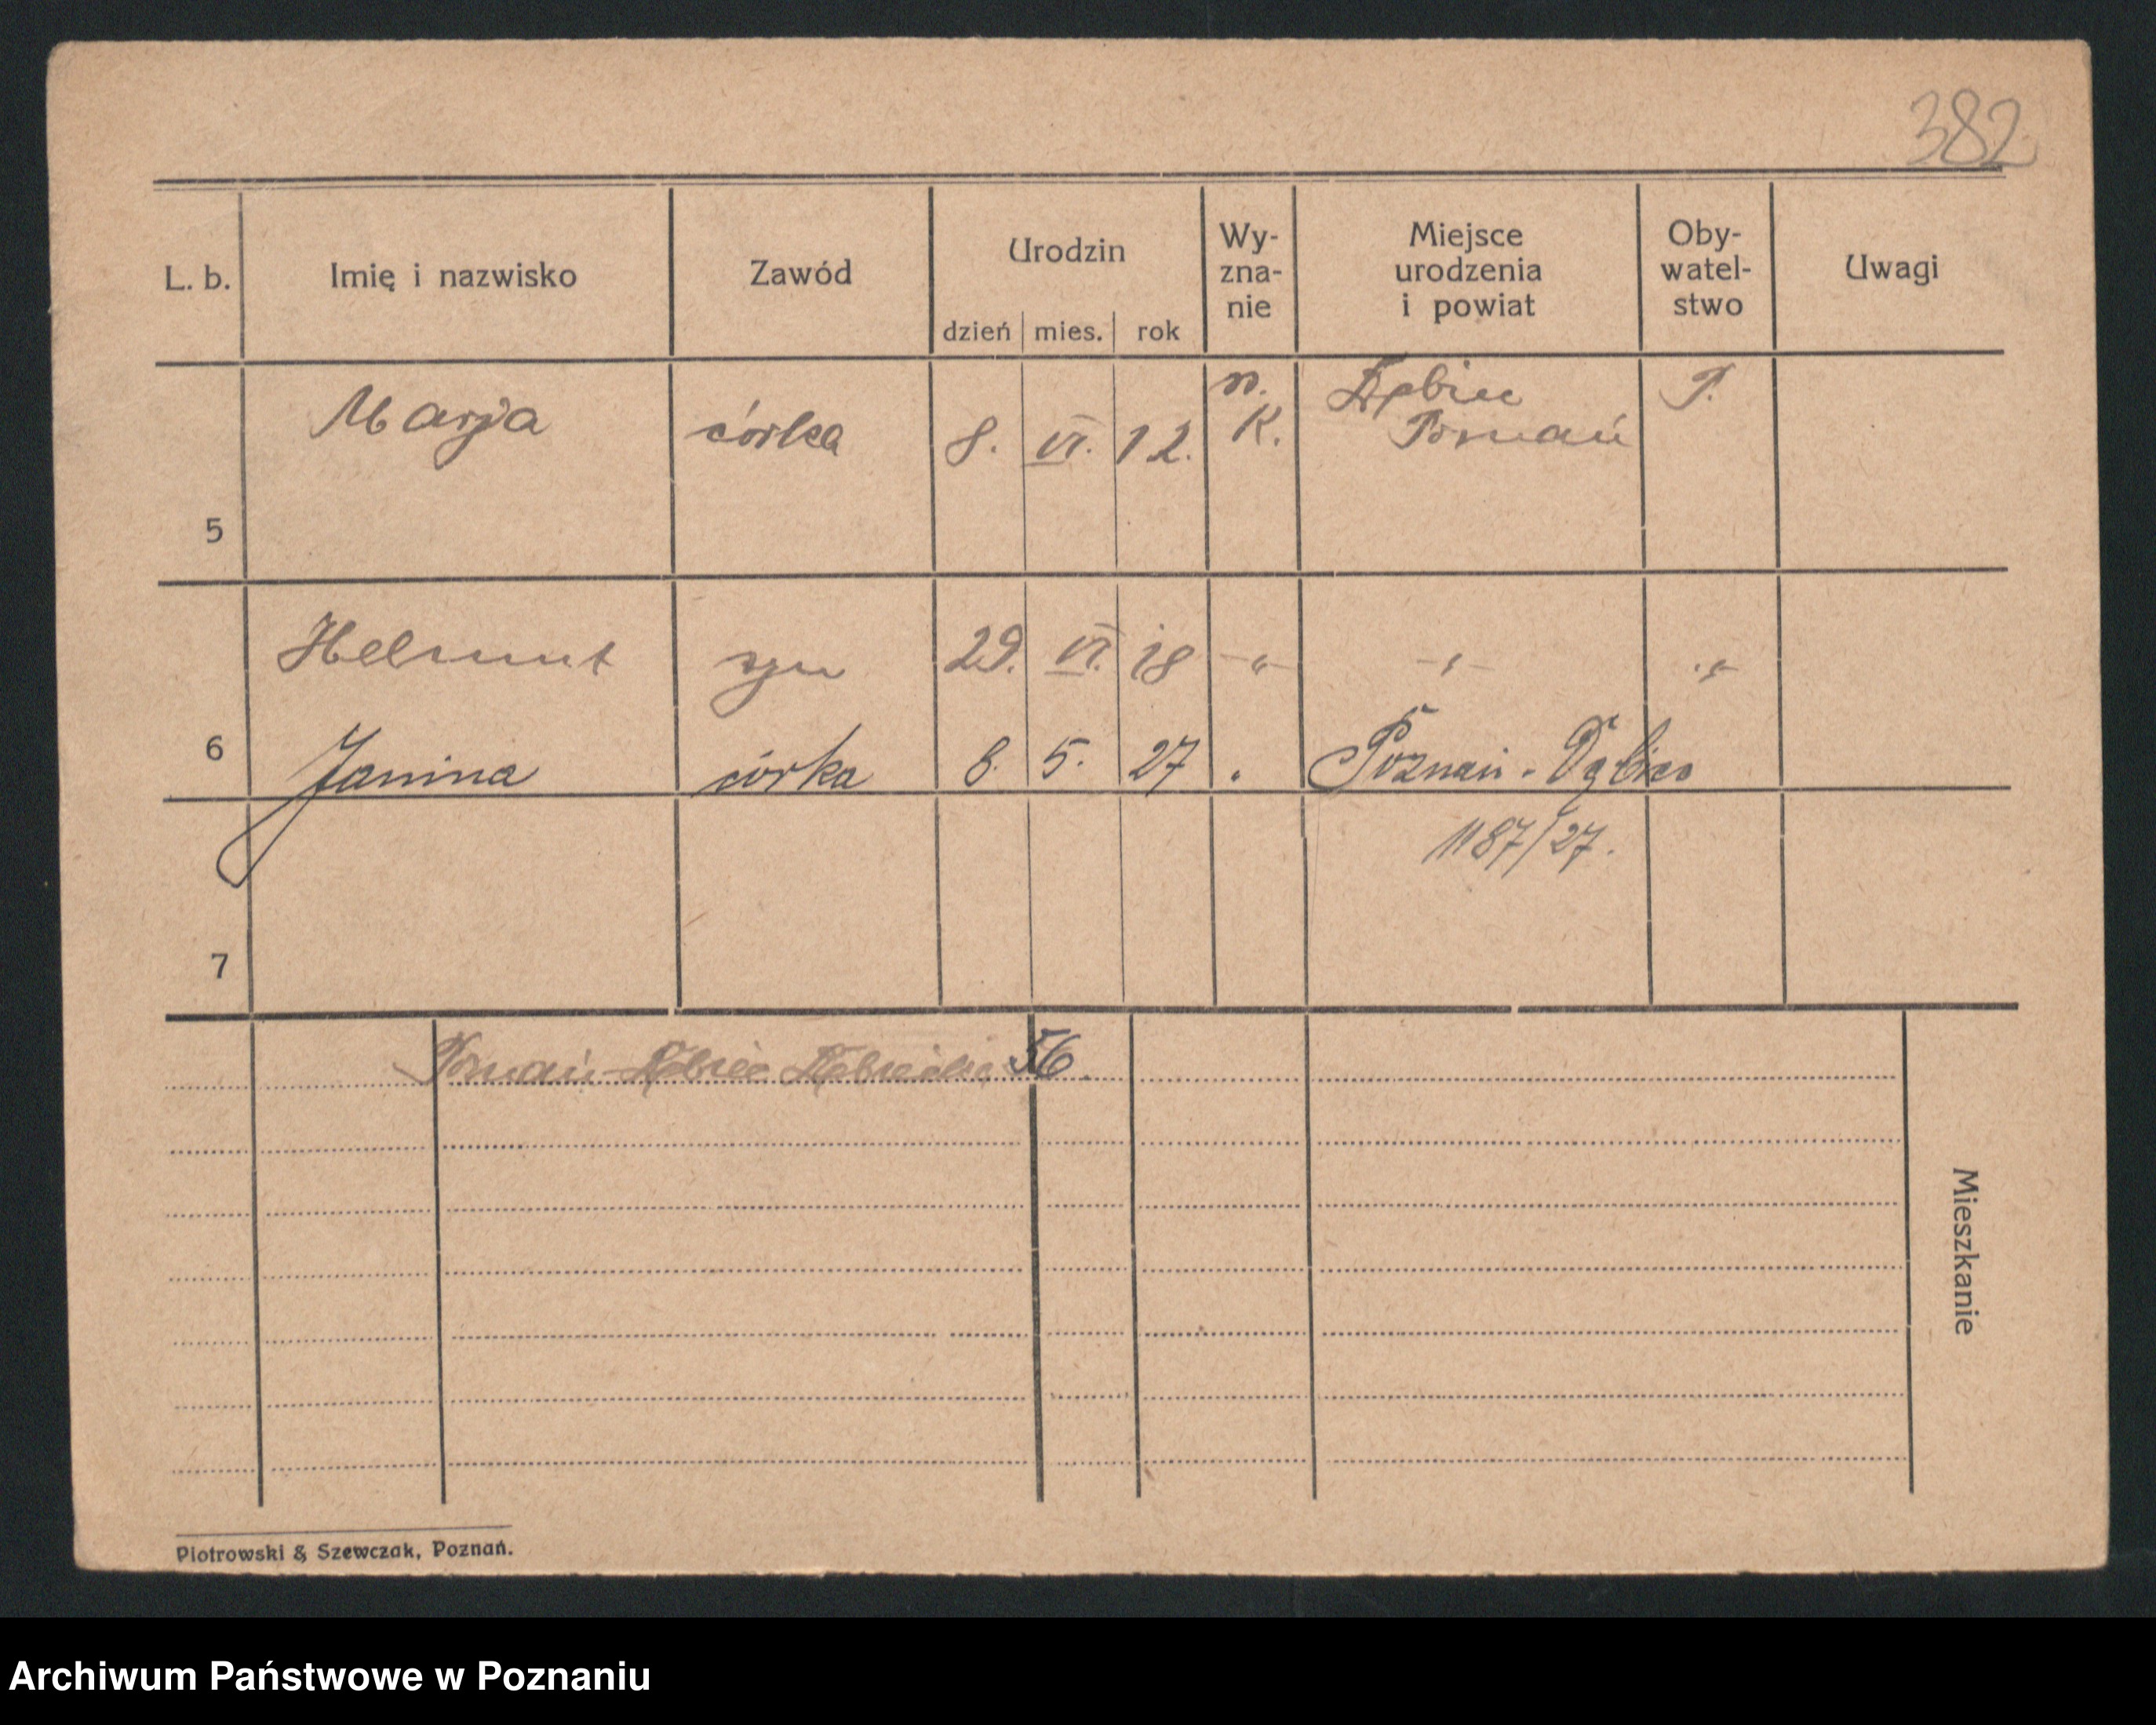 382
L. b. Imię i nazwisko Zawód Urodzin Wy-zna-nie Miejsce urodzenia i powiat Oby-watel-stwo Uwagi
dzień mies. rok
5 Marja córka 8. VI. 12. n. K. Dębiec Poznań P.
Helmut syn 29. VI. 18 -"- -"- -"-
6 Janina córka 8. 5. 27 " Poznań - Dębiec
1187/27.
7
Poznań Dębiec 56.
Mieszkanie
Piotrowski & Szewczak, Poznań.
Archiwum Państwowe w Poznaniu